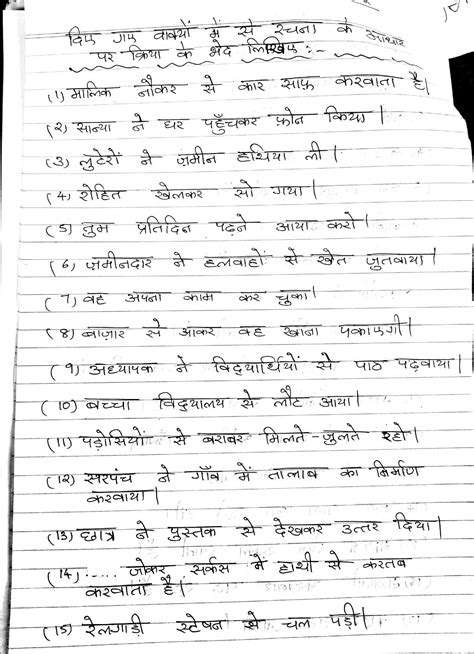 दिए गए वाक्यों में से रचना के आधार
पर क्रिया के भेद लिखिए :-
(1) मालिक नौकर से कार साफ़ करवाता है।
(2) सान्या ने घर पहुँचकर फ़ोन किया।
(3) लुटेरों ने ज़मीन हथिया ली।
(4) रोहित खेलकर सो गया।
(5) तुम प्रतिदिन पढ़ने आया करो।
(6) ज़मीनदार ने हलवाहों से खेत जुतवाया।
(7) वह अपना काम कर चुका।
(8) बाज़ार से आकर वह खाना पकाएगी।
(9) अध्यापक ने विद्यार्थियों से पाठ पढ़वाया।
(10) बच्चा विद्यालय से लौट आया।
(11) पड़ोसियों से बराबर मिलते-जुलते रहो।
(12) सरपंच ने गाँव में तालाब का निर्माण
करवाया।
(13) छात्र ने पुस्तक से देखकर उत्तर दिया।
(14) :.... जोकर सर्कस में हाथी से करतब
करवाता है।
(15) रेलगाड़ी स्टेषन से चल पड़ी।